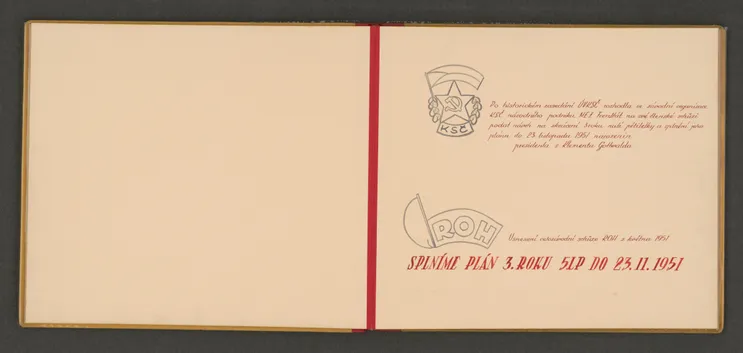 KSČ
Po historickém zasedání ÚVKSČ rozhodla se závodní organisace
KSČ národního podniku MEZ Frenštát na své členské schůzi
podat návrh na zkrácení 3 roku naší pětiletky a splnění jeho
plánu do 23. listopadu 1951 narozenin
presidenta s. Klementa Gottwalda
ROH
Usnesení celozávodní schůze ROH z května 1951
SPLNÍME PLÁN 3. ROKU 5LP DO 23. 11. 1951